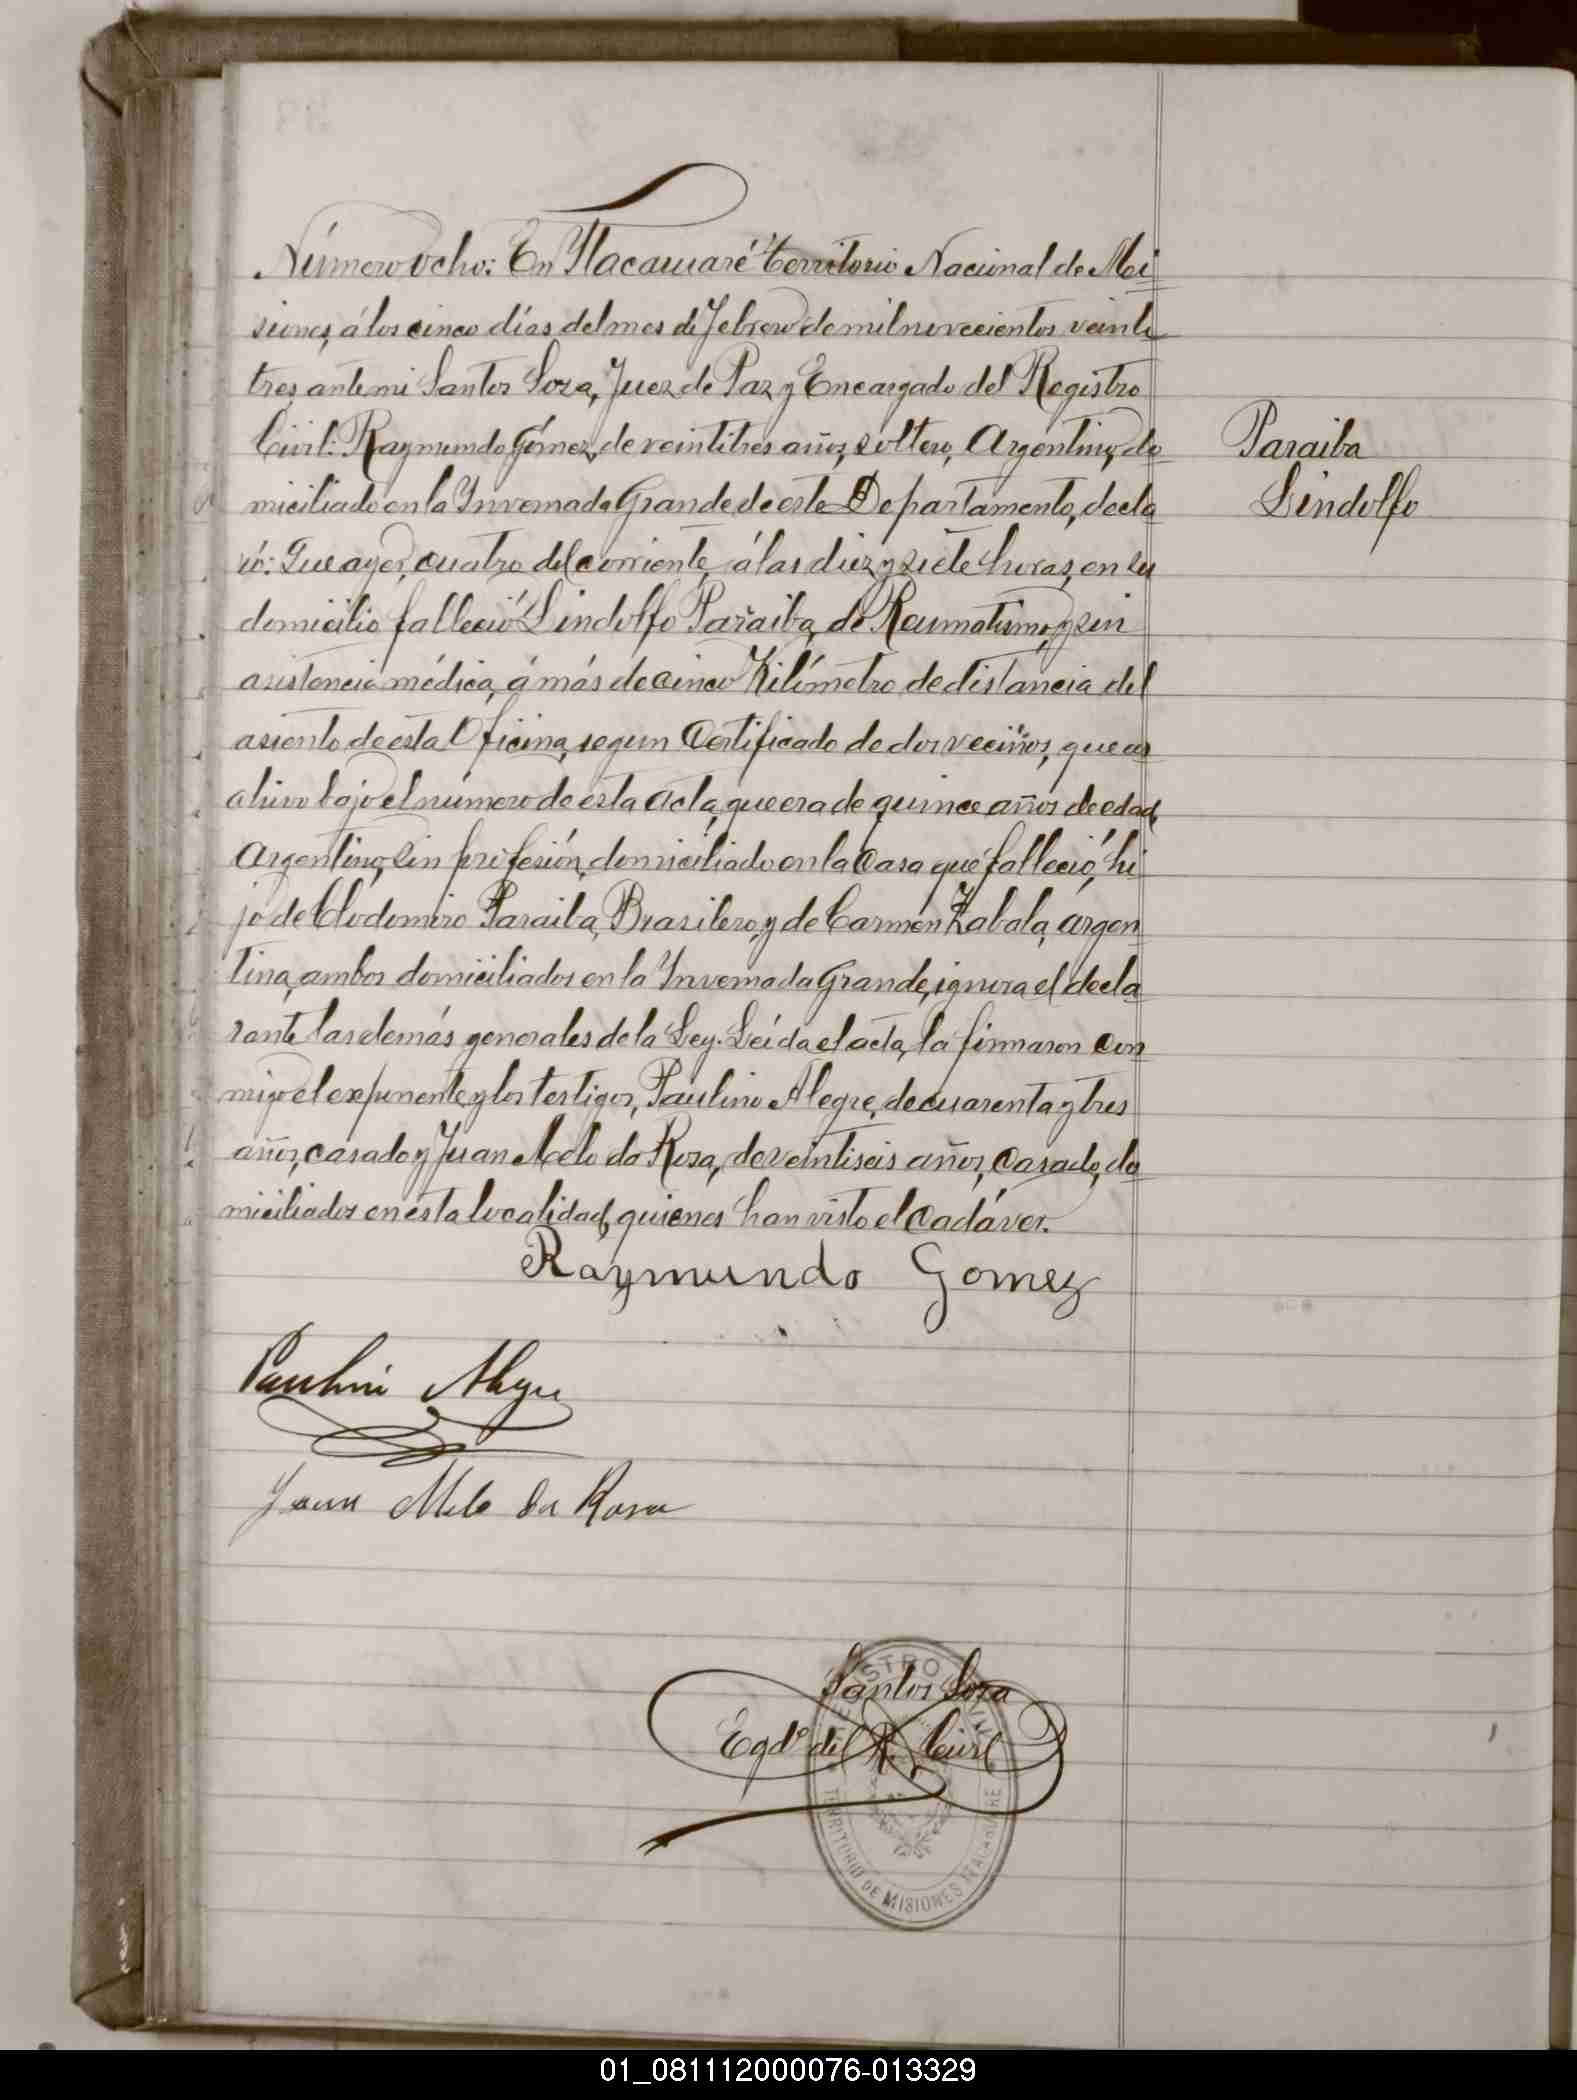 Número ocho: En Ytacaruaré territorio Nacional de Mi
siones, á los cinco días del mes de Febrero de mil novecientos veinti
tres, ante mi Santos Soza, Juez de Paz y Encargado del Registro
Civil: Raymundo Gómez, de veintitres años, soltero, Argentino, do
miciliado en la Invernada Grande de este Departamento, decla
ró: Que ayer, cuatro del corriente, á las diez y siete horas, en su
domicilio falleció Lindolfo Paraiba, de Reumatismo, y sin
asistencia médica, á más de cinco Kilómetro de distancia del
asiento de esta Oficina, segun Certificado de dos vecinos, que ar
chivo bajo el número de esta acta, que era de quince años de edad,
Argentino, sin profesión, domiciliado en la Casa que falleció, hi
jo de Clodomiro Paraiba, Brasilero, y de Carmen Zabala, argen
tina, ambos domiciliados en la Invernada Grande, ignora el decla
rante las demás generales de la Ley. Leída el acta, la firmaron con
migo el exponente y los testigos, Paulino Alegre, de cuarenta y tres
años, casado y Juan Melo da Rosa, de veintiseis años, Casado, do
miciliados en esta localidad, quienes han visto el Cadáver.
Paraiba
Lindolfo
Raymundo Gomez
Paulino Alegre
Juan Melo da Rosa
Santos Soza
Egdo del R. Civil
TERRITORIO DE MISIONES
01_081112000076-013329